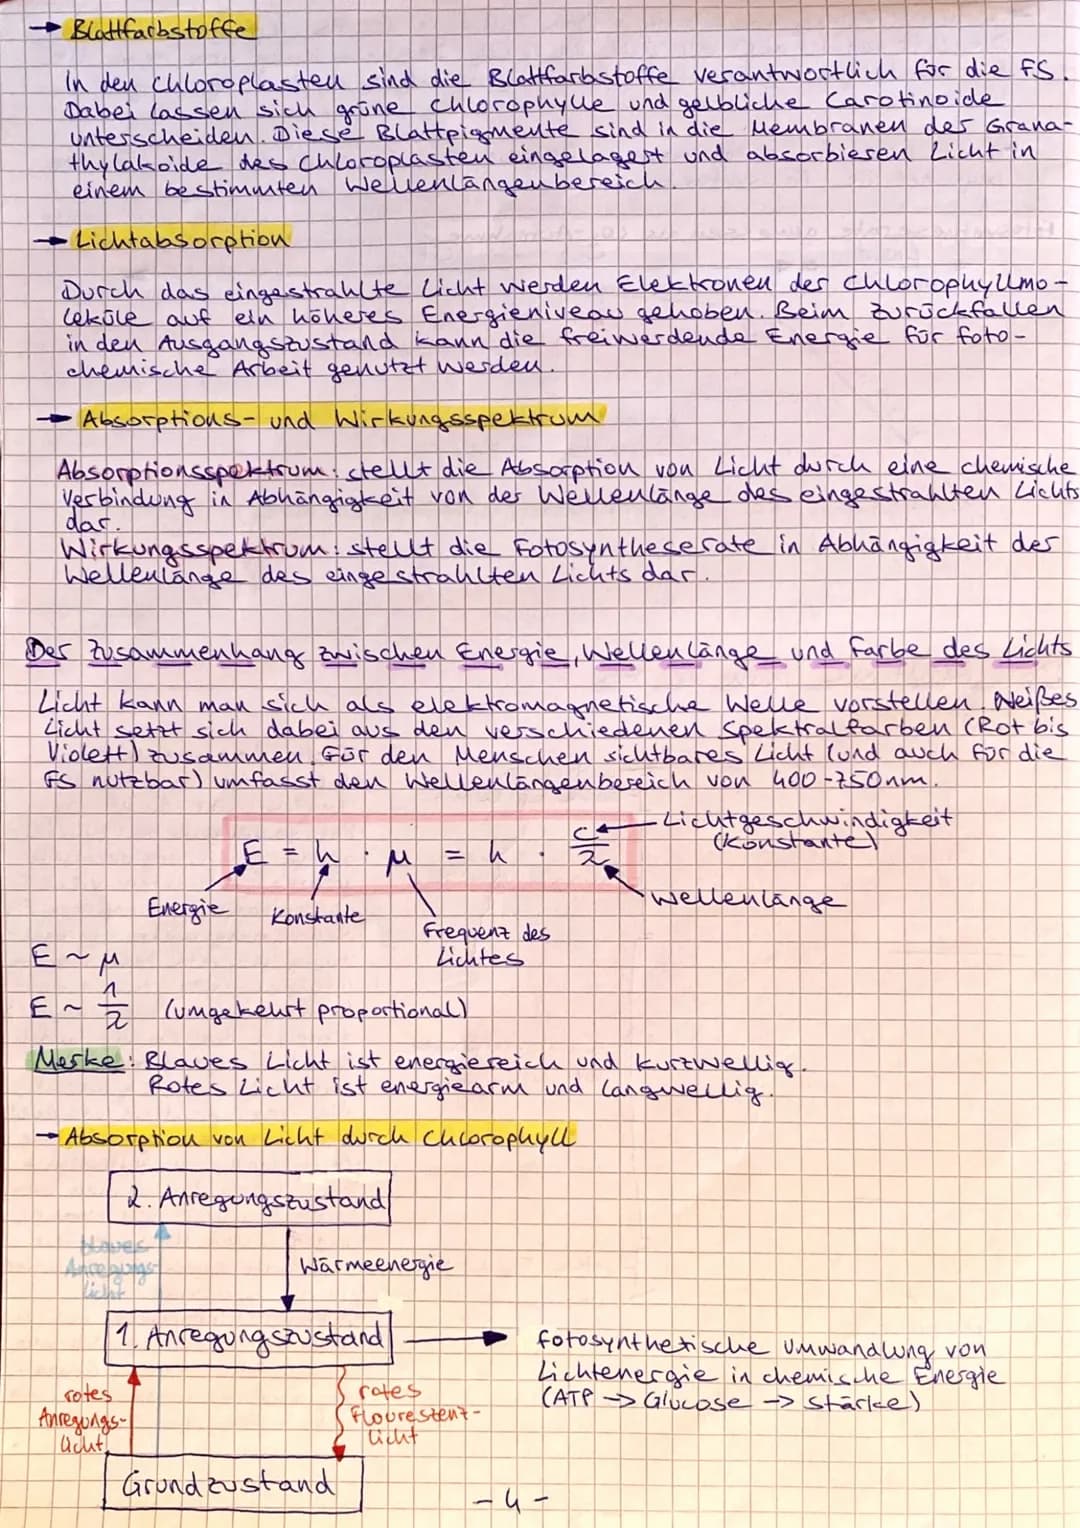 → Blattfarbstoffe
In den Chloroplasten sind die Blattfarbstoffe verantwortlich für die FS.
Dabei lassen sich grüne Chlorophylle und gelbliche Carotinoide
unterscheiden. Diese Blattpigmente sind in die Membranen der Grana-
thylakoide des Chloroplasten eingelagert und absorbieren Licht in
einem bestimmten Wellenlängenbereich.
→ Lichtabsorption
Durch das eingestrahlte Licht werden Elektronen der Chlorophyllmo-
leküle auf ein höheres Energieniveau gehoben. Beim Zurückfallen
in den Ausgangszustand kann die freiwerdende Energie für foto-
chemische Arbeit genutzt werden.
→ Absorptions- und Wirkungsspektrum
Absorptionsspektrum: stellt die Absorption von Licht durch eine chemische
Verbindung in Abhängigkeit von der Wellenlänge des eingestrahlten Lichts
dar.
Wirkungsspektrum: stellt die Fotosyntheserate in Abhängigkeit der
Wellenlänge des eingestrahlten Lichts dar.
Der Zusammenhang zwischen Energie, Wellenlänge und Farbe des Lichts
Licht kann man sich als elektromagnetische Welle vorstellen. Weißes
Licht setzt sich dabei aus den verschiedenen Spektralfarben (Rot bis
Violett) zusammen. Für den Menschen sichtbares Licht (und auch für die
FS nutzbar) umfasst den Wellenlängenbereich von 400-750nm.
Lichtgeschwindigkeit
(Konstante)
E = h · μ = h · c/λ
Wellenlänge
Energie Konstante
Frequenz des
Lichtes
E ~ μ
E ~ 1/λ (umgekehrt proportional)
Merke: Blaues Licht ist energiereich und kurzwellig.
Rotes Licht ist energiearm und langwellig.
→ Absorption von Licht durch Chlorophyll
2. Anregungszustand
blaues
Anregungs-
licht
Wärmeenergie
1. Anregungszustand
fotosynthetische Umwandlung von
Lichtenergie in chemische Energie
(ATP → Glucose → Stärke)
rotes
Anregungs-
licht
rotes
Flourestenz-
licht
Grundzustand
- 4 -